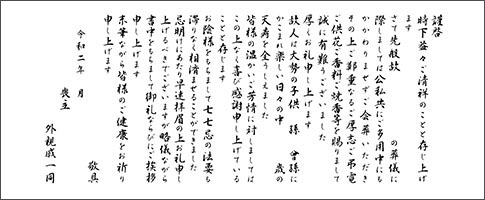 謹啓
時下益々ご清祥のことと存じ上げ
ます
さて先般故 の葬儀に
際しましては公私共にご多用中にも
かかわりませずご会葬いただき
その上ご鄭重なるご厚志ご弔電
ご供花ご香料ご焼香等を賜りまして
誠に有難うございました
厚くお礼申し上げます
故人は大勢の子供 孫 曽孫に
かこまれ楽しい日々の中 歳の
天寿を全うしえました
皆様の温かいご芳情に対しましては
この上なく喜び感謝申し上げている
ことと存じます
お陰様をもちまして七七忌の法要も
滞りなく相済ませることができました
忌明けにあたり早速拝眉の上お礼申し
上げるべきでございますが略儀ながら
書中をもちまして御礼ならびにご挨拶
申し上げます
末筆ながら皆様のご健康をお祈り
申し上げます
敬具
令和二年 月
喪主
外親戚一同